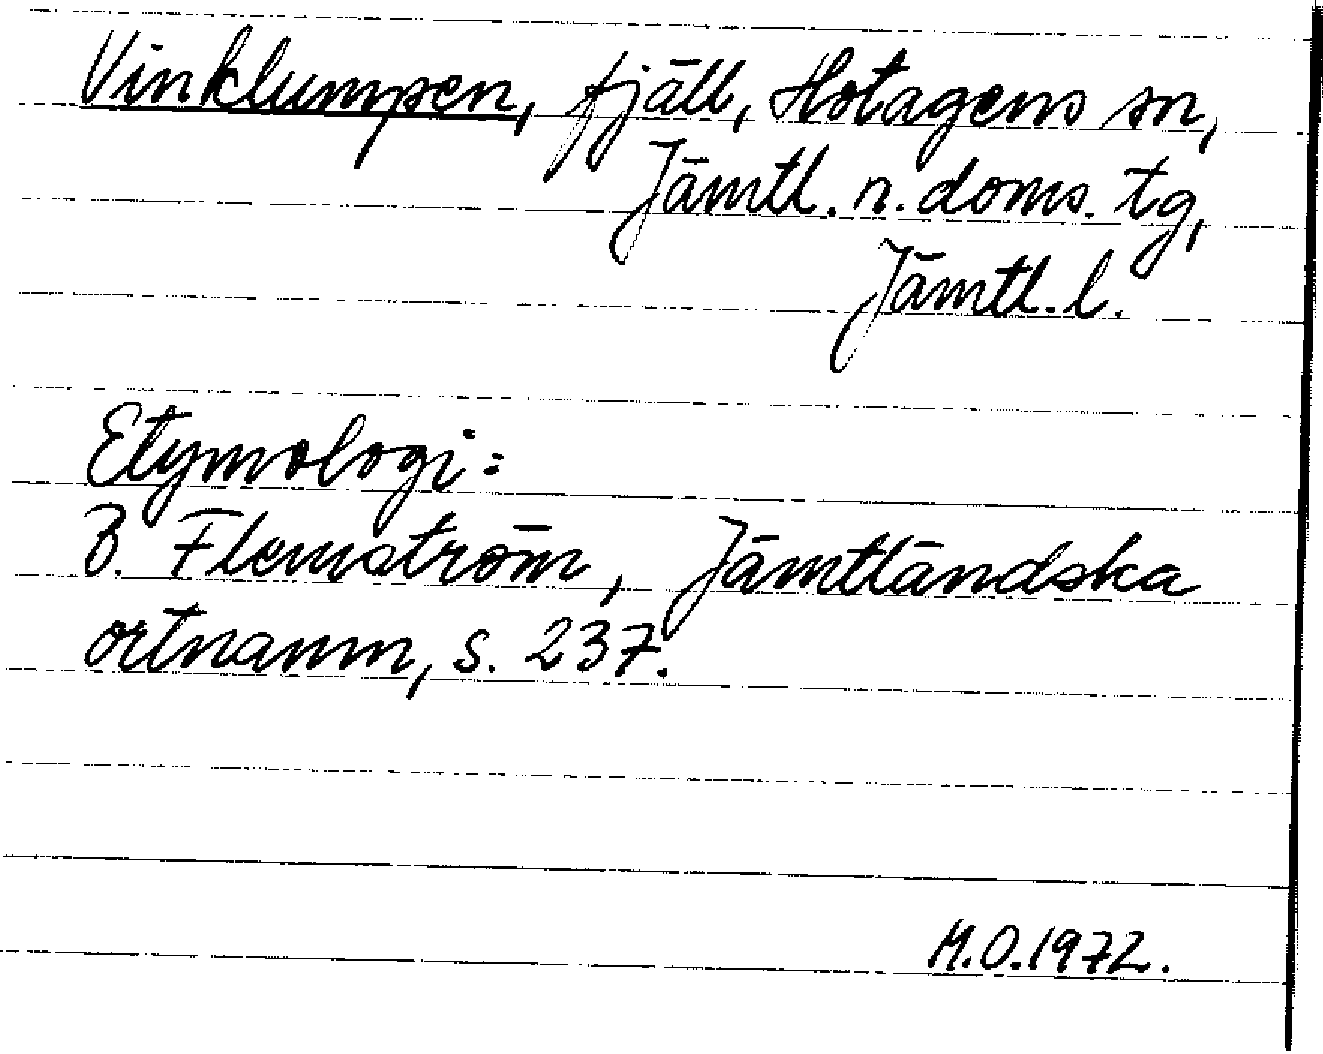 Vinklumpen, fjäll, Hotagens sn,
Jämtl. n. doms. tg,
Jämtl. l.
Etymologi:
B. Flemström, Jämtländska
ortnamn, s. 237.
M.O. 1972.